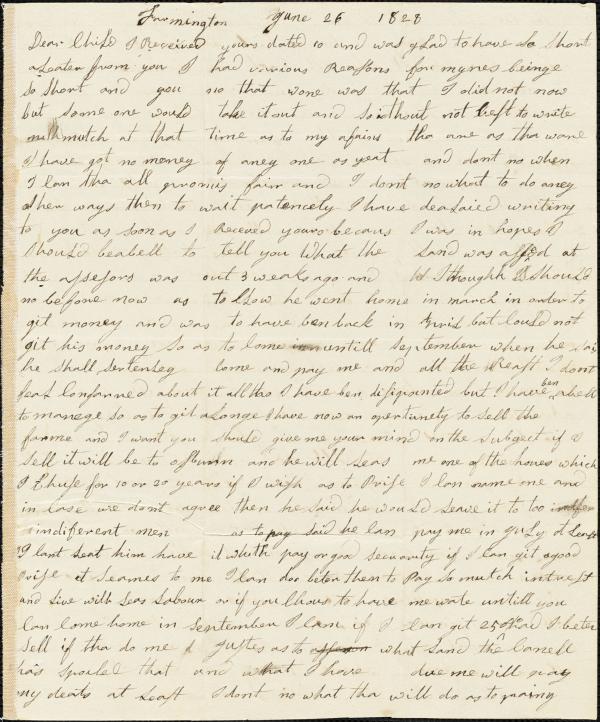 Farmington June 26 1828
Dear Child I Received yours dated 10 and was glad to have so short
a Leater from you I had various Reasons for mynes beinge
so short and you no that wone was that I did not now
but some one would take it out and so i thout not best to write
mutch at that time as to my afairs tha are as tha ware
I have got no money of aney one as yeat and dont no when
I can tha all promis fair and I dont no what to do aney
other ways then to wait patencely I have dealaied writing
to you as soon as I Receved yours becaus I was in hopes I
Should be abell to tell you What the Land was assed at
the assesors was out 3 weeks ago and I thought I Should
no before now as to he went home in march in order to
git money and was to have ben back in Avril but Could not
git his money so as to Come untill September when he sais
he shall sertenley Come and pay me and all the Reast I dont
feal Consarned about it all tho I have ben disipianted but I have ben abell
to manege so as to git a Longe I have now an opertunety to Sell the
farme and I want you should give me your mind on the Subject if I
Sell it will be to and he will Leas me one of the houses which
I Chuse for 10 or 20 years if I wish as to Prise I Can name me and
in Case we dont agree then he said he would Leave it to too
indifferent men as to pay said he Can pay me in July at Least
I Cant Leat him have it without pay or good securaity if I Can git a good
Prise it Seames to me I Can doo beter then to Pay so mutch intrest
and Live with Leas Labour or if you Chous to have me wate untill you
Can Come home in September I Can if I Can git had I beter
Sell if tha do me Justes as to what Land the Canell
has spoiled that and what I have due me will pay
my deats at Least I dont no what tha will do as to paing